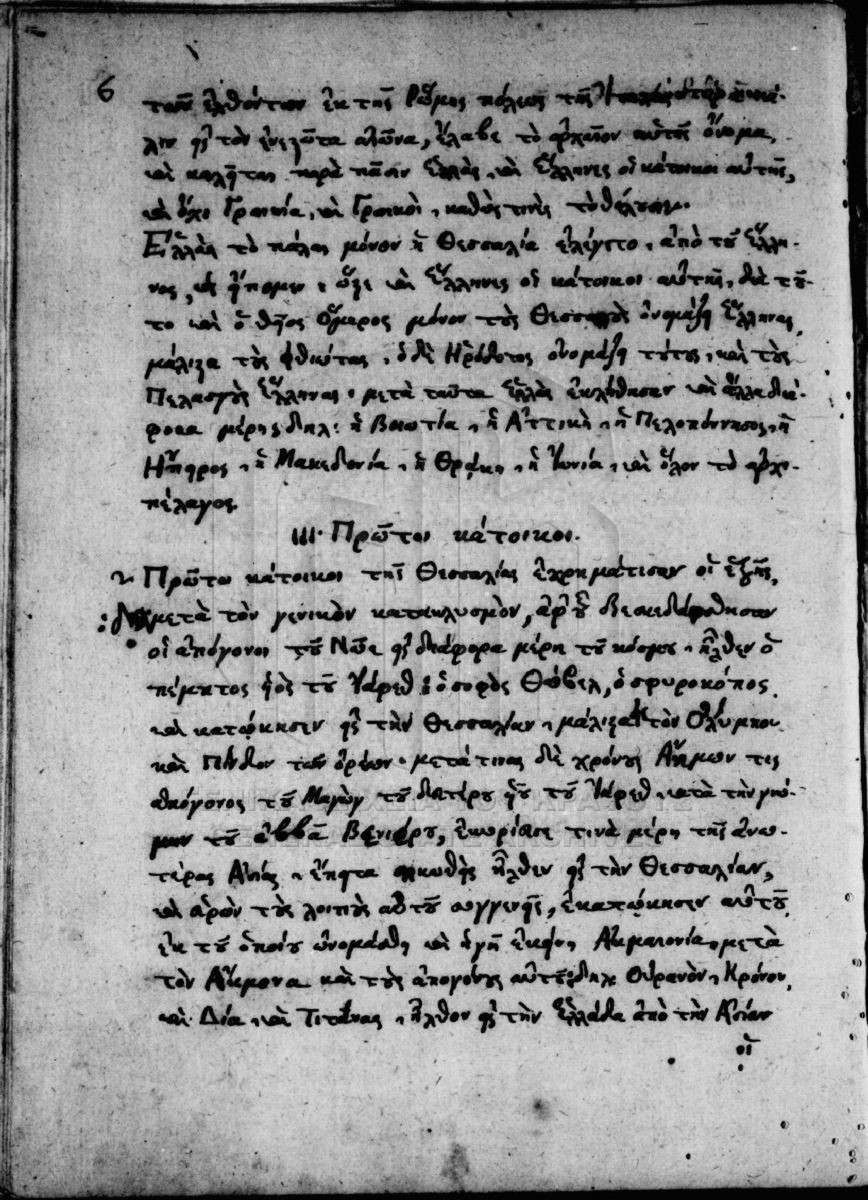 6
τῶν ἐλθόντων ἐκ τῆς Ῥώμης πόλεως τῆς
λιν εἰς τὸν ἐνεςῶτα αἰῶνα, ἔλαβε τὸ ἀρχαῖον αὐτῆς ὄνομα,
καὶ καλεῖται παρὰ πᾶσιν Ἑλλὰς, καὶ Ἕλληνες οἱ κάτοικοι αὐτῆς,
καὶ ὄχι Γραικία, καὶ Γραικοὶ, καθώς τινὲς τὸ θέλουν.
Ἑλλὰς τὸ πάλαι μόνον ἡ Θεσσαλία ἐλέγετο, ἀπὸ τοῦ Ἕλλη-
νος, ὡς εἴπομεν, ὅθεν καὶ Ἕλληνες οἱ κάτοικοι αὐτῆς, διὰ τοῦ-
το καὶ ὁ θεῖος Ὅμηρος μόνον τοὺς Θεσσαλοὺς ὀνομάζει Ἕλληνας,
μάλιςα τοὺς Φθιώτας, ὁ δὲ Ἡρόδοτος ὀνομάζει τούτους, καὶ τοὺς
Πελασγοὺς Ἕλληνας· μετὰ ταῦτα Ἑλλὰς ἐκλήθησαν καὶ ἄλλα διά-
φορα μέρη, δηλ: ἡ Βοιωτία, ἡ Ἀττικὴ, ἡ Πελοπόννησος, ἡ
Ἤπειρος, ἡ Μακεδονία, ἡ Θρᾴκη, ἡ Ἰωνία, καὶ ὅλον τὸ ἀρχι-
πέλαγος.
III. Πρῶτοι κάτοικοι.
Πρῶτοι κάτοικοι τῆς Θεσσαλίας ἐχρημάτισαν οἱ ἑξῆς,
μετὰ τὸν γενικὸν κατακλυσμὸν, ἀφ' οὗ διεσκεδάσθησαν
οἱ ἀπόγονοι τοῦ Νῶε εἰς διάφορα μέρη τοῦ κόσμου, ἦλθεν ὁ
πέμπτος υἱὸς τοῦ Ἰάφεθ ὁ σοφὸς Θώβελ, ὁ σφυροκόπος,
καὶ κατῴκησεν εἰς τὴν Θεσσαλίαν, μάλιςα τὸν Ὄλυμπον
καὶ Πίνδον τῶν ὀρέων· μετά τινας δὲ χρόνους Ἄκμων τις
ἀπόγονος τοῦ Μαγὼγ τοῦ δευτέρου υἱοῦ τοῦ Ἰάφεθ, κατὰ τὴν γνώ-
μην τοῦ ἀββᾶ Βενιέρου, ἐκυρίευσε τινὰ μέρη τῆς ἀνω-
τέρας Ἀσίας, ἔπειτα ἦλθεν εἰς τὴν Θεσσαλίαν,
καὶ ἀφ' ὧν τοὺς λοιποὺς αὐτοῦ συγγενεῖς, ἐκατῴκησεν αὐτοῦ,
ἐκ τοῦ ὁποίου ὠνομάσθη καὶ ἡ γῆ ἐκείνη Ἀκμαιονία, μετὰ
τὸν Ἄκμονα καὶ τοὺς ἀπογόνους αὐτοῦ, δηλ: Οὐρανὸν, Κρόνον,
καὶ Δία, καὶ Τιτᾶνας, ἦλθον εἰς τὴν Ἑλλάδα ἀπὸ τὴν Ἀσίαν
οἱ